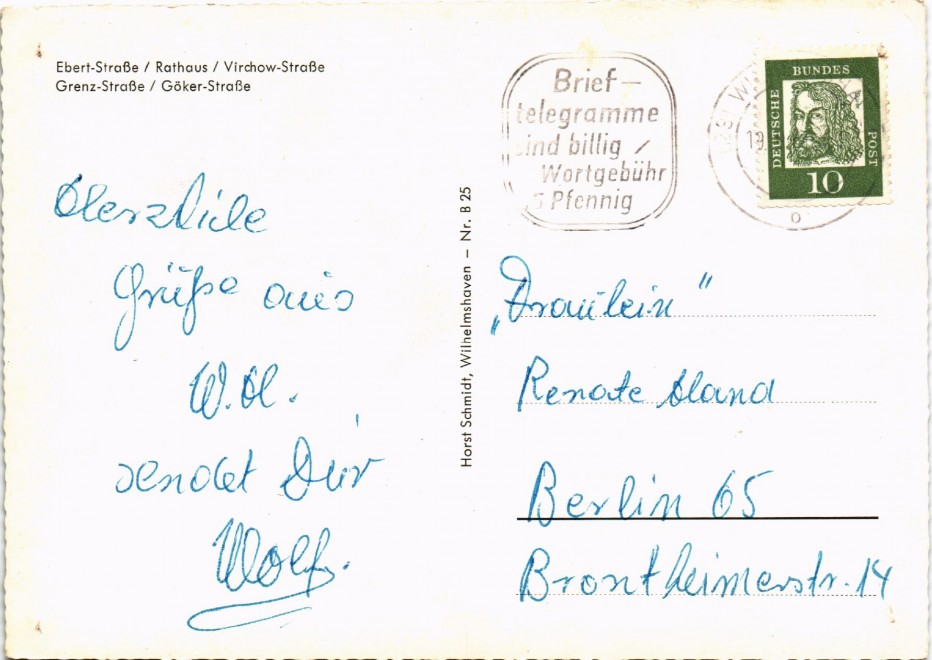 Ebert-Straße / Rathaus / Virchow-Straße
Grenz-Straße / Göker-Straße
Herzliche
Grüße aus
W.H.
sendet Dir
Wolf.
Horst Schmidt, Wilhelmshaven – Nr. B 25
Brief-
telegramme
sind billig /
Wortgebühr
5 Pfennig
DEUTSCHE
BUNDES
POST
10
„Fräulein"
Renate Hand
Berlin 65
Drontheimerstr. 14